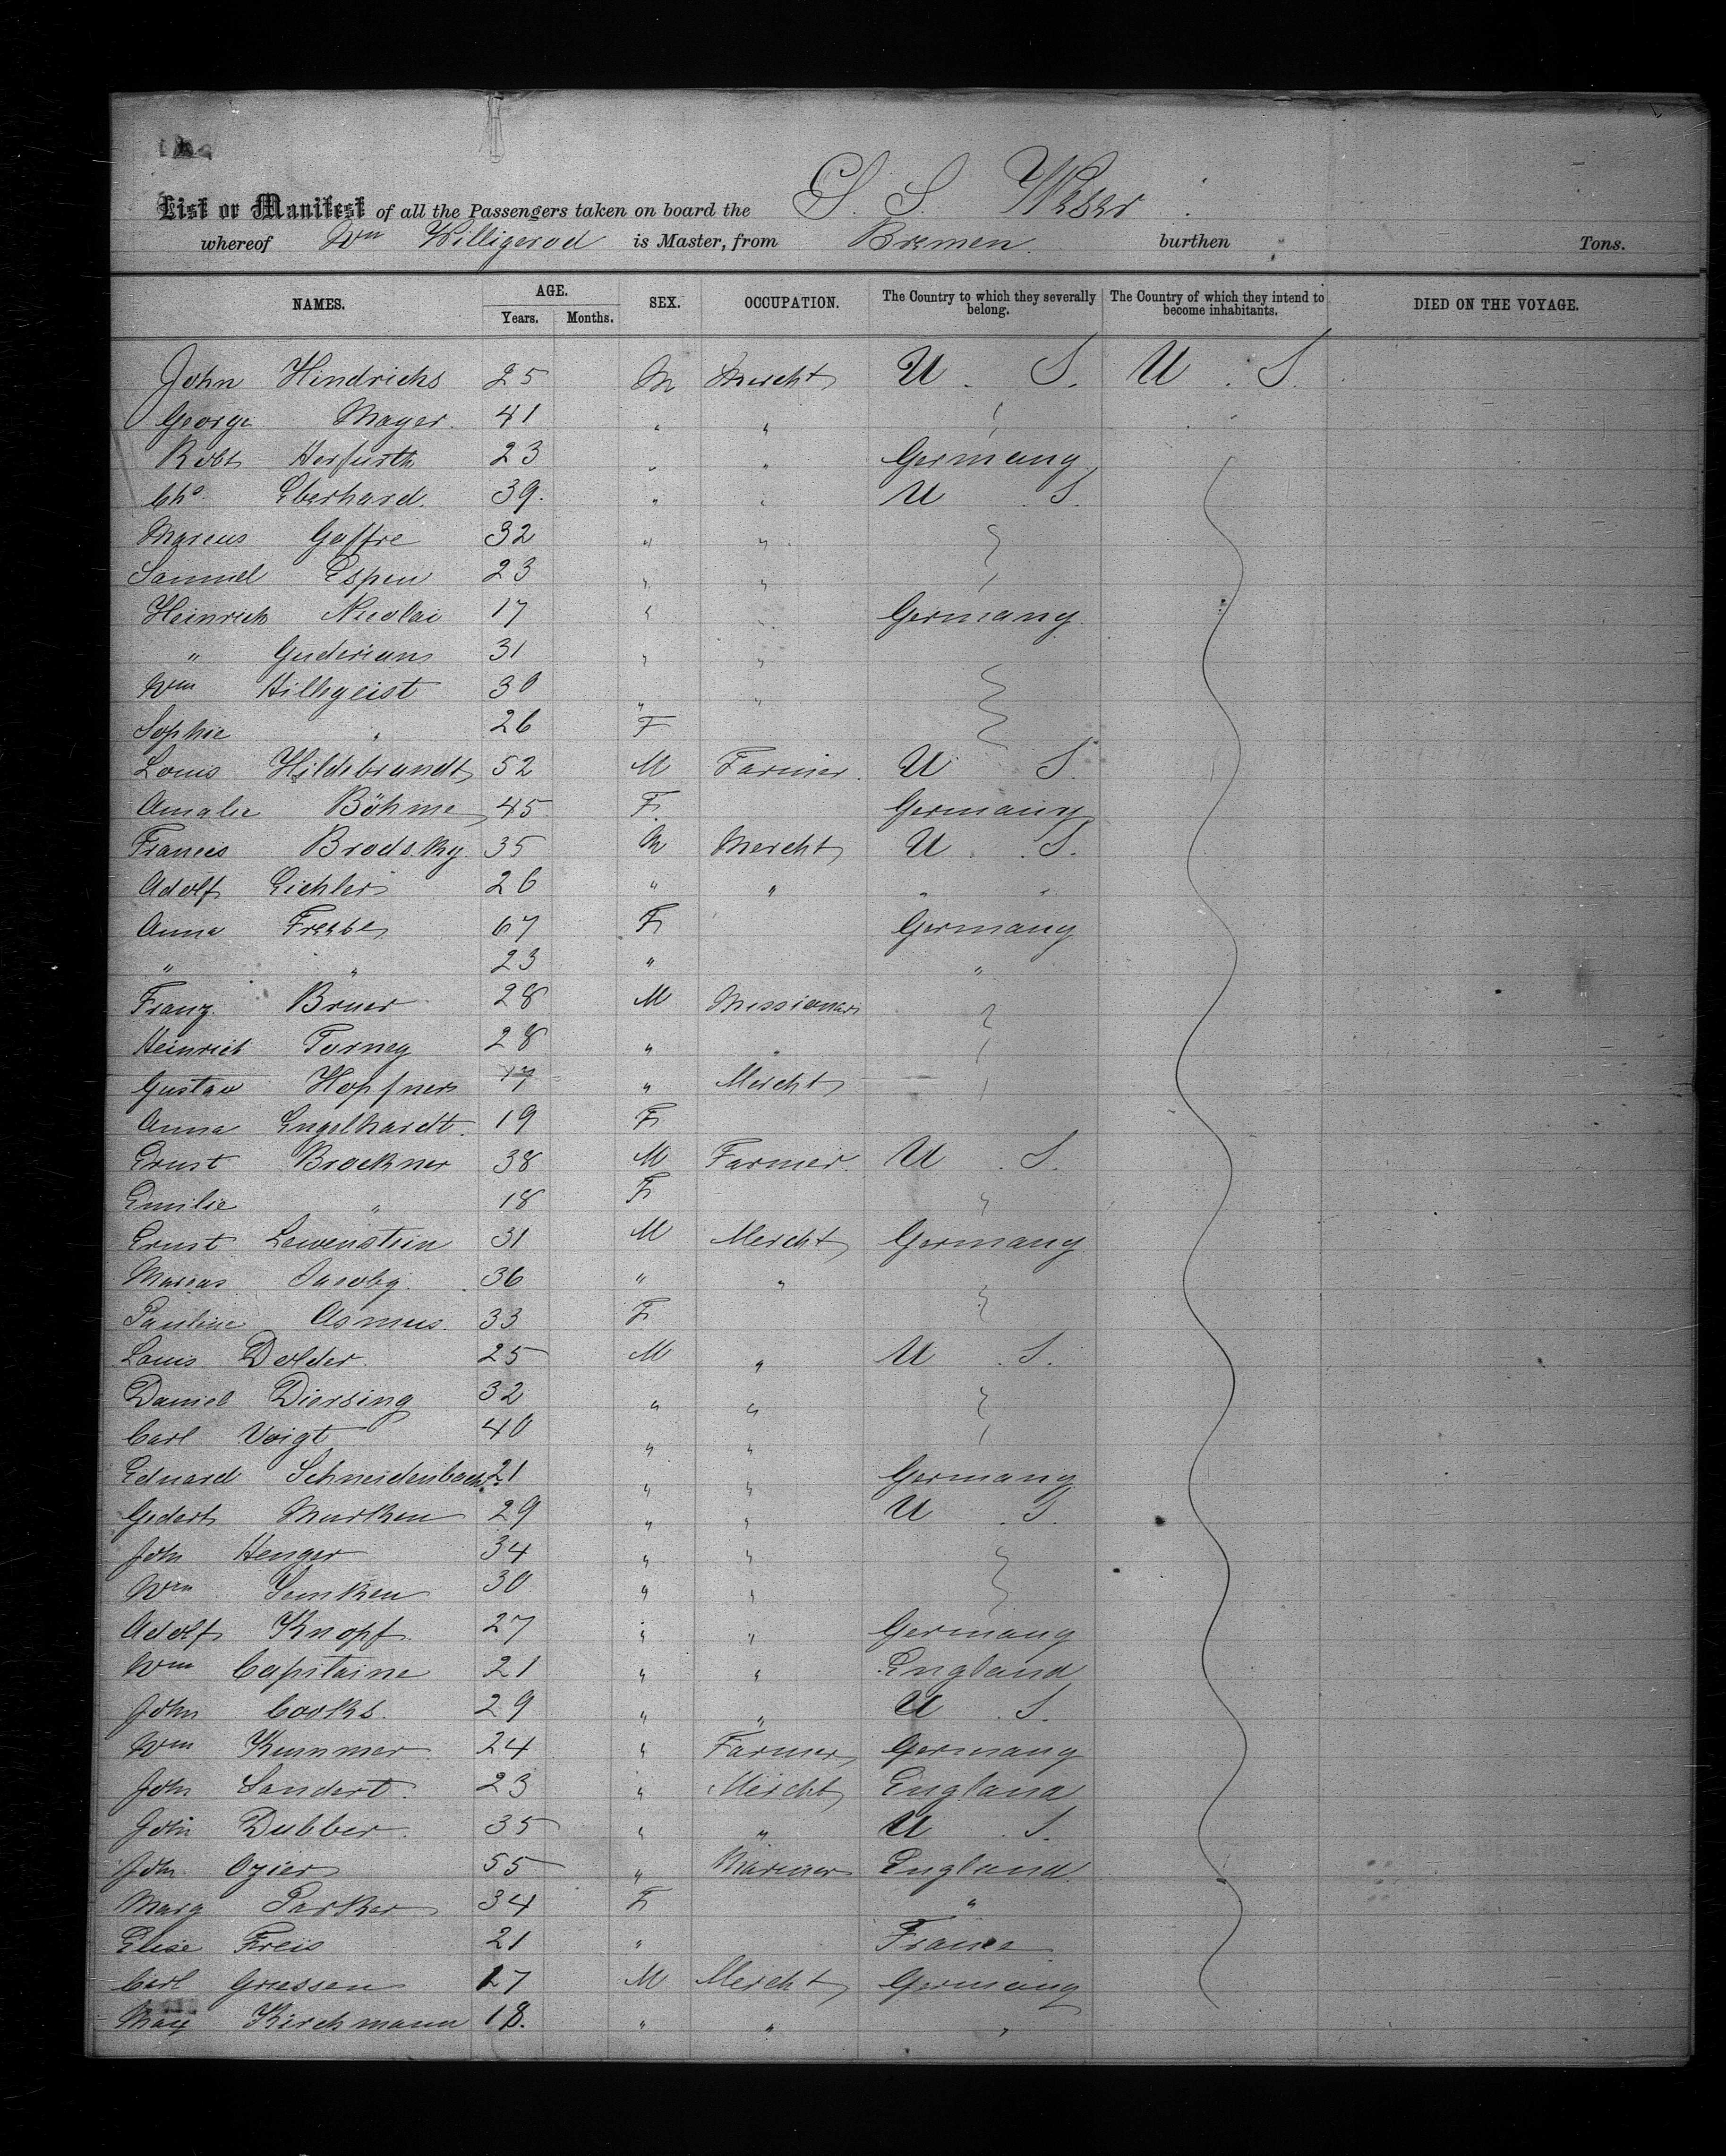 List or Manifest of all the Passengers taken on board the S. S. Weser
whereof Wm Willigerod is Master, from Bremen burthen Tons.
NAMES. AGE. Years. Months. SEX. OCCUPATION. The Country to which they severally belong. The Country of which they intend to become inhabitants. DIED ON THE VOYAGE.
John Hindrichs 25 M Mercht U. S. U. S.
George Mayer 41 " "
Robt Herfurth 23 " " Germany
Chs Eberhard 39. " " U S.
Marcus Goffre 32 " "
Samuel Espen 23 " "
Heinrich Nicolai 17 " " Germany
" Guderian 31 " "
Wm Hilkgeist 30 " "
Sophie " 26 F
Louis Hildebrandt 52 M Farmer. U S.
Amalie Böhme 45 F. Germany
Francis Brodsky 35 M Mercht U. S.
Adolf Eichler 26 " " " "
Anna Freebe 67 F Germany
" " 23 " "
Franz Bruer 28 M Missionar
Heinrich Torney 28 " "
Gustav Hopfner 17 " Mercht
Anna Engelhardt. 19 F
Ernst Brockner 38 M Farmer. U. S.
Emilie " 18 F "
Ernst Lewenstein 31 M Mercht Germany
Marcus Jacoby. 36 " "
Pauline Asmus. 33 F
Louis Dolder. 25 M " U. S.
Daniel Diersing 32 " "
Carl Voigt 40 " "
Eduard Schneidenbach 21 " " Germany
Gedert Murken 29 " " U. S.
John Henger 34 " "
Wm Semken 30 " "
Adolf Knopf 27 " " Germany
Wm Capitaine 21 " " England
John Cooks. 29 " " U. S.
Wm Kummer 24 " Farmer Germany
John Sandert. 23 " Mercht England
John Dubber. 35 " " U. S.
John Ozier 55 " Mariner England.
Mary Parker 34 F "
Elise Freis 21 " France
Carl Griessen 27 M Mercht Germany
Max Kirchmann 18. " " "